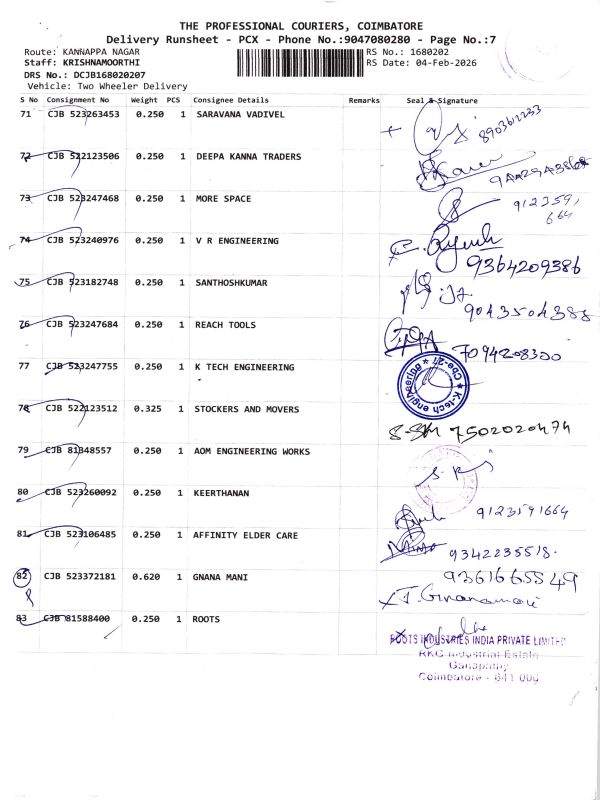 THE PROFESSIONAL COURIERS, COIMBATORE
Delivery Runsheet - PCX - Phone No.:9047080280 - Page No.:7
Route: KANNAPPA NAGAR RS No.: 1680202
Staff: KRISHNAMOORTHI RS Date: 04-Feb-2026
DRS No.: DCJB168020207
Vehicle: Two Wheeler Delivery
S No Consignment No Weight PCS Consignee Details Remarks Seal & Signature
71 CJB 523263453 0.250 1 SARAVANA VADIVEL
72 CJB 522123506 0.250 1 DEEPA KANNA TRADERS
73 CJB 523247468 0.250 1 MORE SPACE 9123591
664
74 CJB 523240976 0.250 1 V R ENGINEERING
9364209386
75 CJB 523182748 0.250 1 SANTHOSHKUMAR
9043504388
76 CJB 523247684 0.250 1 REACH TOOLS
7094208300
77 CJB 523247755 0.250 1 K TECH ENGINEERING K-tech engineering Cbe-27
78 CJB 522123512 0.325 1 STOCKERS AND MOVERS
7502020474
79 CJB 81848557 0.250 1 AOM ENGINEERING WORKS
80 CJB 523260092 0.250 1 KEERTHANAN
9123591664
81 CJB 523106485 0.250 1 AFFINITY ELDER CARE
9342235518.
82 CJB 523372181 0.620 1 GNANA MANI 9361665549
J. Gnanamani
83 CJB 81588400 0.250 1 ROOTS
ROOTS INDUSTRIES INDIA PRIVATE LIMITED
RKG Industrial Estate
Ganapathy
Coimbatore - 641 006